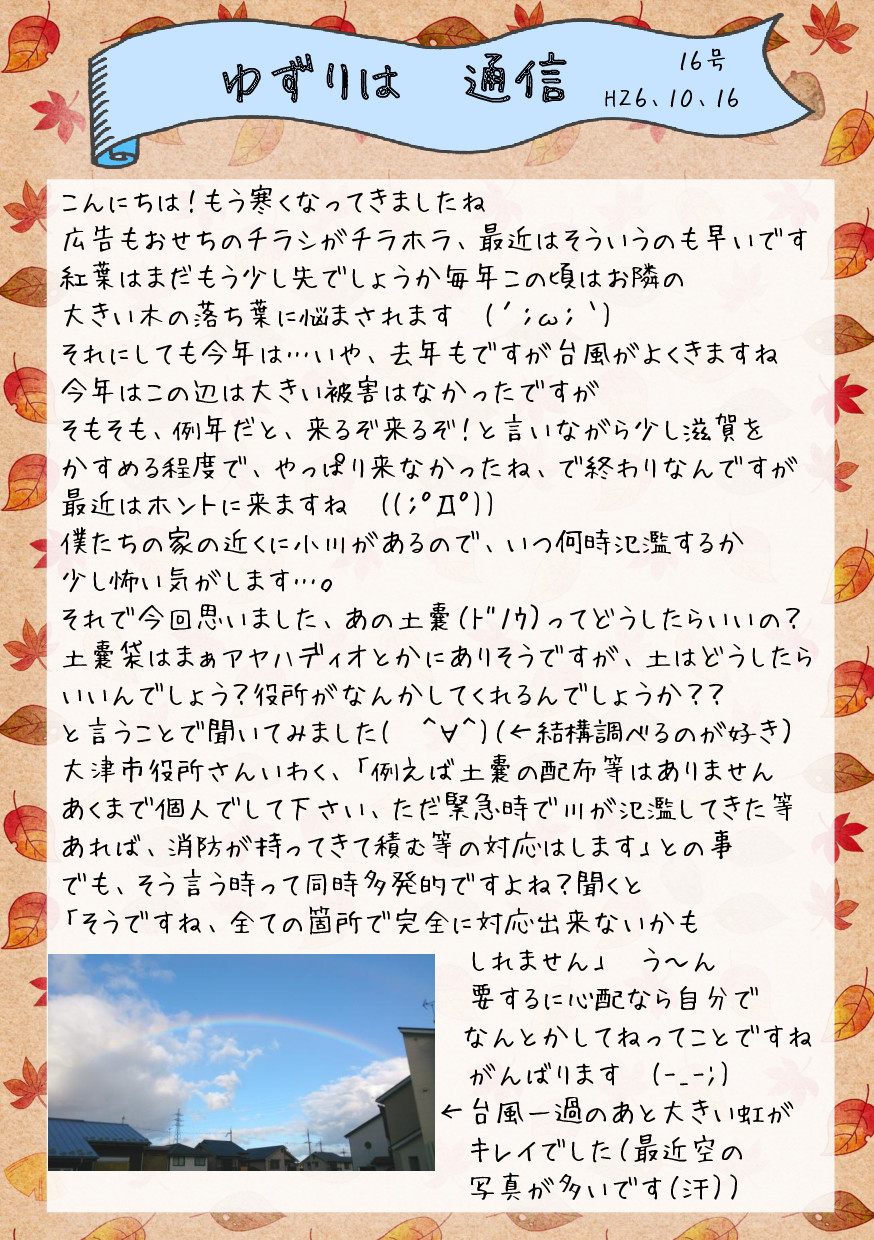 ゆずりは 通信
16号
H26、10、16
こんにちは!もう寒くなってきましたね
広告もおせちのチラシがチラホラ、最近はそういうのも早いです
紅葉はまだもう少し先でしょうか毎年この頃はお隣の
大きい木の落ち葉に悩まされます (´;ω;`)
それにしても今年は…いや、去年もですが台風がよくきますね
今年はこの辺は大きい被害はなかったですが
そもそも、例年だと、来るぞ来るぞ!と言いながら少し滋賀を
かすめる程度で、やっぱり来なかったね、で終わりなんですが
最近はホントに来ますね ((;ºДº))
僕たちの家の近くに小川があるので、いつ何時氾濫するか
少し怖い気がします…。
それで今回思いました、あの土嚢(ドノウ)ってどうしたらいいの?
土嚢袋はまぁアヤハディオとかにありそうですが、土はどうしたら
いいんでしょう?役所がなんかしてくれるんでしょうか??
と言うことで聞いてみました( ^∀^)(←結構調べるのが好き)
大津市役所さんいわく、「例えば土嚢の配布等はありません
あくまで個人でして下さい、ただ緊急時で川が氾濫してきた等
あれば、消防が持ってきて積む等の対応はします」との事
でも、そう言う時って同時多発的ですよね?聞くと
「そうですね、全ての箇所で完全に対応出来ないかも
しれません」 う~ん
要するに心配なら自分で
なんとかしてねってことですね
がんばります (-_-;)
←台風一過のあと大きい虹が
キレイでした(最近空の
写真が多いです(汗))